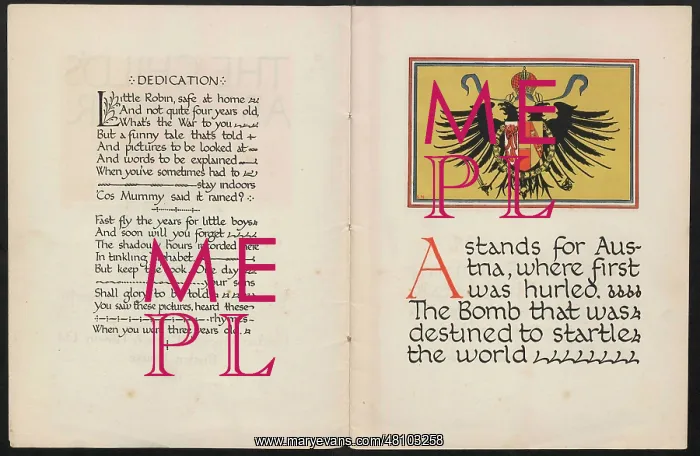 DEDICATION
Little Robin, safe at home
And not quite four years old,
What's the War to you
But a funny tale that's told
And pictures to be looked at
And words to be explained
When you've sometimes had to
stay indoors
'Cos Mummy said it rained?
Fast fly the years for little boys
And soon will you forget
The shadowy hours recorded here
In tinkling alphabet
But keep the book. One day
your sons
Shall glory to be told
You saw these pictures, heard these
rhymes
When you were three years old.
ME
PL
ME
PL
A stands for Aus-
tria, where first
was hurled.
The Bomb that was
destined to startle
the world
www.maryevans.com/48109258